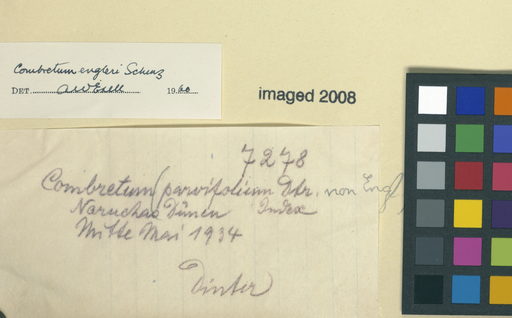 Combretum engleri Schinz
DET. A W Exell 1960
imaged 2008
7278
Combretum (parvifolium Dtr. non Engl.)
Naruchas Dünen Index
Mitte Mai 1934
Dinter